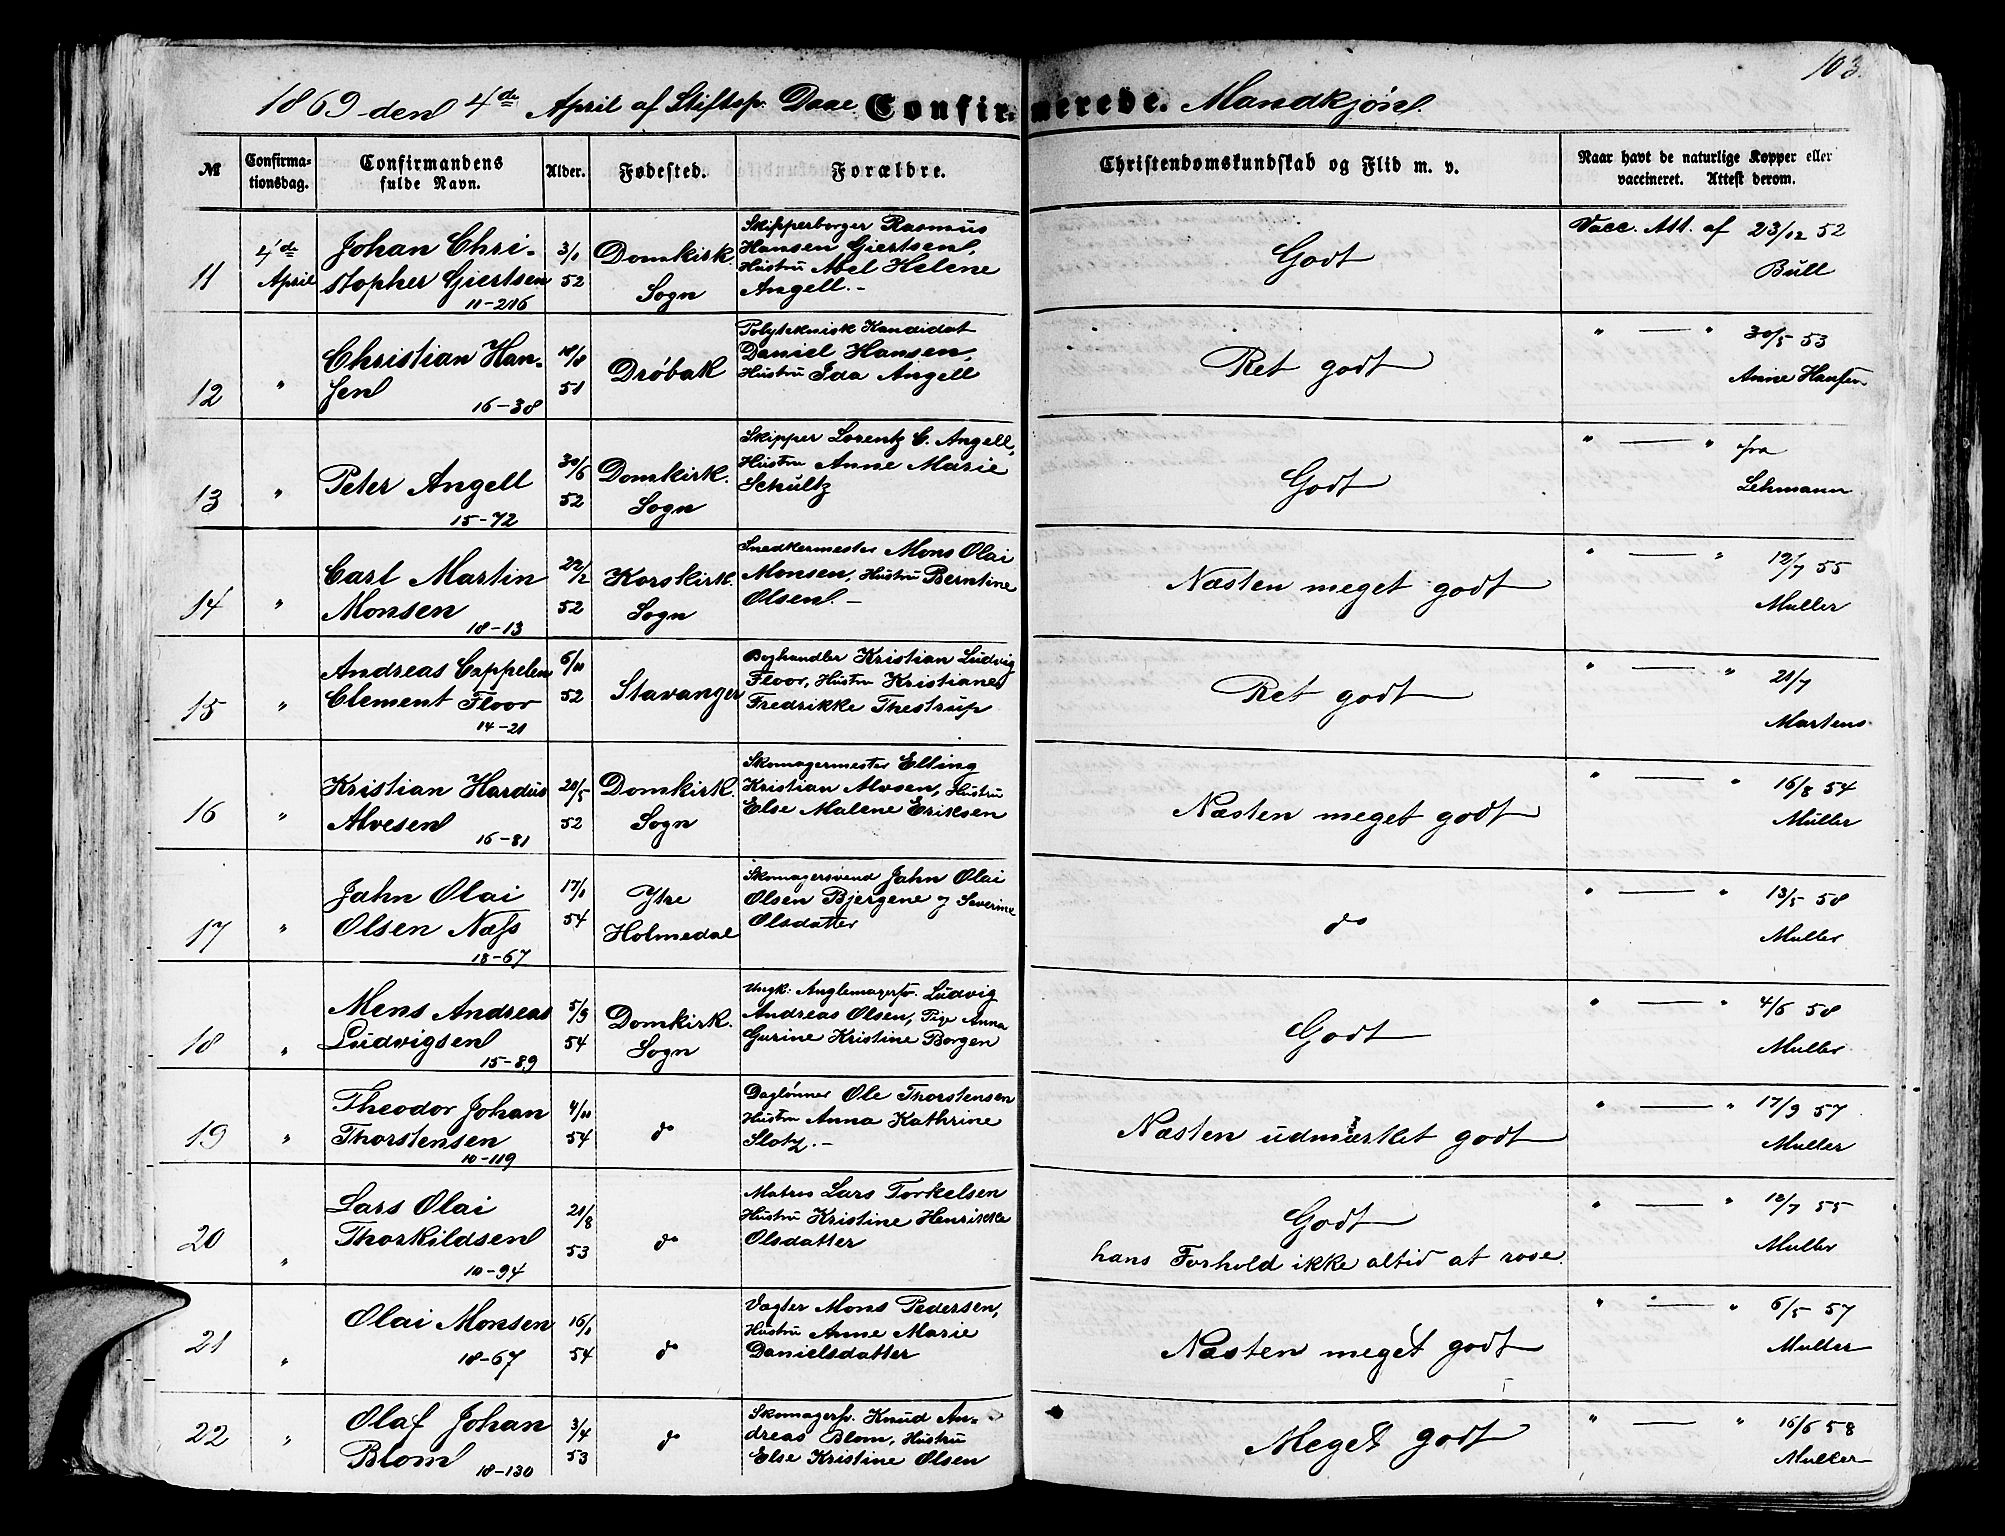 103.
1869 den 4de April af Stiftsp. Daae Confirmerede. Mandkjøn.
№ Confirmationsdag. Confirmandens fulde Navn. Alder. Fødested. Forældre. Christendomskundskab og Flid m. v. Naar havt de naturlige Kopper eller vaccineret. Attest derom.
11 4de April Johan Christopher Giertsen 11-216 3/1 52 Domkirk. Sogn Skipperborger Rasmus Hansen Giertsen, Hustru Abel Helene Angell.- Godt Vacc. Att. af 23/12 52 Bull
12 " Christian Hansen 16-38 18/8 51 Drøbak Polyteknisk Kandidat Daniel Hansen, Hustru Ida Angell Ret godt " — " 30/5 53 Anne Hansen
13 " Peter Angell 15-72 30/6 52 Domkirk. Sogn Skipper Lorentz C. Angell, Hustru Anne Marie Schultz Godt " — " fra Lehmann
14 " Carl Martin Monsen 18-13 22/2 52 Korskirk. Sogn Snedkermester Mons Olai Monsen, Hustru Berntine Olsen.- Næsten meget godt " — " 12/7 55 Muller
15 " Andreas Cappelen Clement Floor 14-21 6/11 52 Stavanger Boghandler Kristian Ludvig Floor, Hustru Kristiane Fredrikke Thestrup Ret godt " — " 21/7 Martens
16 " Kristian Hardus Alvesen 16-81 28/5 52 Domkirk. Sogn Skomagermester Elling Kristian Alvsen, Hustru Else Malene Eriksen Næsten meget godt " — " 16/8 54 Müller
17 " Jahn Olai Olsen Næss 18-67 17/1 54 Ytre Holmedal Skomagersvend Jahn Olai Olsen Bjergene og Severine Olsdatter do " — " 13/5 58 Muller
18 " Mens Andreas Ludvigsen 15-89 5/9 54 Domkirk. Sogn Ungk: Anglemagersv. Ludvig Andreas Olsen, Pige Anna Gurine Kristine Borgen Godt " — " 4/6 58 Muller
19 " Theodor Johan Thorstensen 10-119 4/11 54 do Daglønner Ole Thorstensen Hustru Anna Kathrine Slotz.- Næsten udmærket godt " — " 17/9 57 Muller
20 " Lars Olai Thorkildsen 10-94 21/8 53 do Matros Lars Torkelsen Hustru Kristine Henrikke Olsdatter Godt hans Forhold ikke altid at rose. " — " 12/7 55 Muller
21 " Olai Monsen 18-67 16/1 54 do Vagter Mons Pedersen, Hustru Anne Marie Danielsdatter Næsten meget godt " — " 6/5 57 Muller
22 " Olaf Johan Blom 18-130 3/4 53 do Skomagersv. Knud Andreas Blom, Hustru Else Kristine Olsen Meget godt " — " 16/6 58 Muller